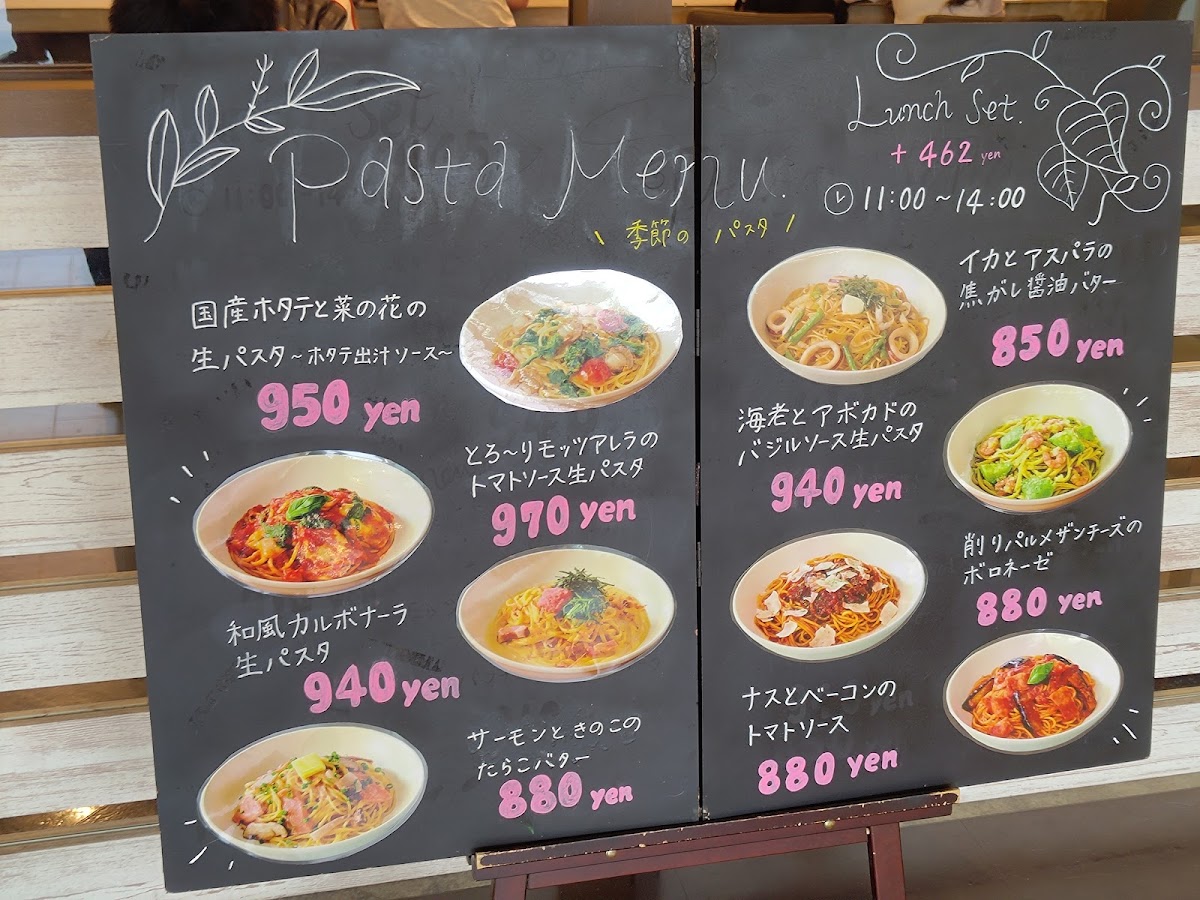 Pasta Menu.
\ 季節の パスタ /
国産ホタテと菜の花の
生パスタ~ホタテ出汁ソース~
950 yen
とろ~りモッツアレラの
トマトソース生パスタ
970 yen
和風カルボナーラ
生パスタ
940 yen
サーモンときのこの
たらこバター
880 yen
Lunch Set.
+ 462 yen
11:00~14:00
イカとアスパラの
焦がし醤油バター
850 yen
海老とアボカドの
バジルソース生パスタ
940 yen
削りパルメザンチーズの
ボロネーゼ
880 yen
ナスとベーコンの
トマトソース
880 yen